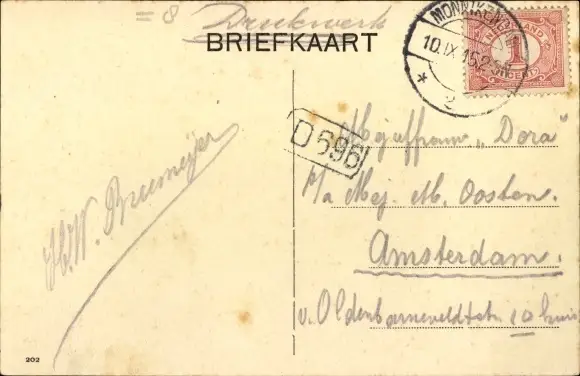 = 8 Drukwerk
BRIEFKAART
MONNIKENDAM
10.IX.15 2-5N
2
NEDERLAND
1
CENT
D 696
Mejuffrouw „Dora"
p/a Mej. M. Oosten.
Amsterdam.
v. Oldenbarneveldtstr 10 huis
H.W. Breemeijer
202